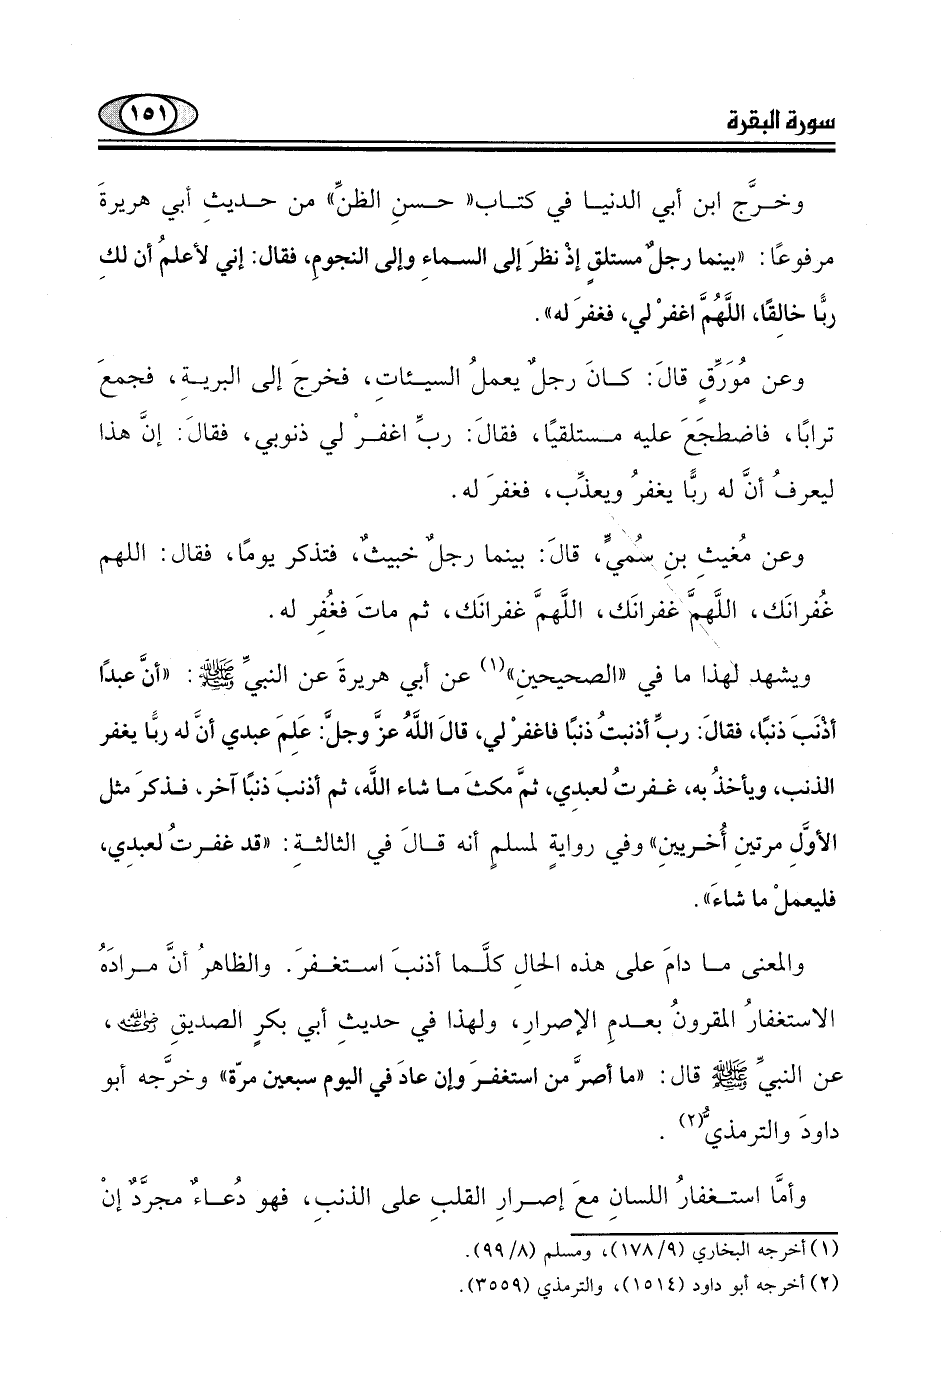 سورة البقرة
١٥١
وخرَّج ابن أبي الدنيا في كتاب« حسنِ الظنِّ» من حديثِ أبي هريرةَ
مرفوعًا: «بينما رجلٌ مستلقٍ إذْ نظرَ إلى السماءِ وإلى النجومِ، فقال: إني لأعلمُ أن لكِ
ربًّا خالقًا، اللَّهُمَّ اغفرْ لي، فغفرَ له».
وعن مُوَرِّقٍ قالَ: كانَ رجلٌ يعملُ السيئاتِ، فخرجَ إلى البريةِ، فجمعَ
ترابًا، فاضطجَعَ عليه مستلقيًا، فقالَ: ربِّ اغفرْ لي ذنوبي، فقالَ: إنَّ هذا
ليعرفُ أنَّ له ربًّا يغفرُ ويعذِّب، فغفرَ له.
وعن مُغيثِ بنِ سُميٍّ، قالَ: بينما رجلٌ خبيثٌ، فتذكر يومًا، فقال: اللهم
غُفرانَك، اللَّهمَّ غفرانَك، اللَّهمَّ غفرانَك، ثم ماتَ فغُفِر له.
ويشهد لهذا ما في «الصحيحين»(١) عن أبي هريرةَ عن النبيِّ ﷺ: «أنَّ عبدًا
أذْنَبَ ذنبًا، فقالَ: ربِّ أذنبتُ ذنبًا فاغفرْ لي، قالَ اللَّهُ عزَّ وجلَّ: عَلِمَ عبدي أنَّ له ربًّا يغفر
الذنب، ويأخذُ به، غفرتُ لعبدي، ثمَّ مكثَ ما شاء اللَّه، ثم أذنبَ ذنبًا آخر، فذكرَ مثل
الأوَّلِ مرتينِ أُخريينِ» وفي روايةٍ لمسلمٍ أنه قالَ في الثالثةِ: «قد غفرتُ لعبدي،
فليعملْ ما شاءَ».
والمعنى ما دامَ على هذه الحالِ كلَّما أذنبَ استغفرَ. والظاهرُ أنَّ مرادَهُ
الاستغفارُ المقرونُ بعدمِ الإصرارِ، ولهذا في حديثِ أبي بكرٍ الصديقِ رضي الله عنه،
عن النبيِّ ﷺ قال: «ما أصرَّ من استغفرَ وإن عادَ في اليومِ سبعين مرّة» وخرَّجه أبو
داودَ والترمذيُّ(٢).
وأمَّا استغفارُ اللسانِ معَ إصرارِ القلبِ على الذنبِ، فهو دُعاءٌ مجرَّدٌ إنْ
(١) أخرجه البخاري (٩/ ١٧٨)، ومسلم (٨/ ٩٩).
(٢) أخرجه أبو داود (١٥١٤)، والترمذي (٣٥٥٩).